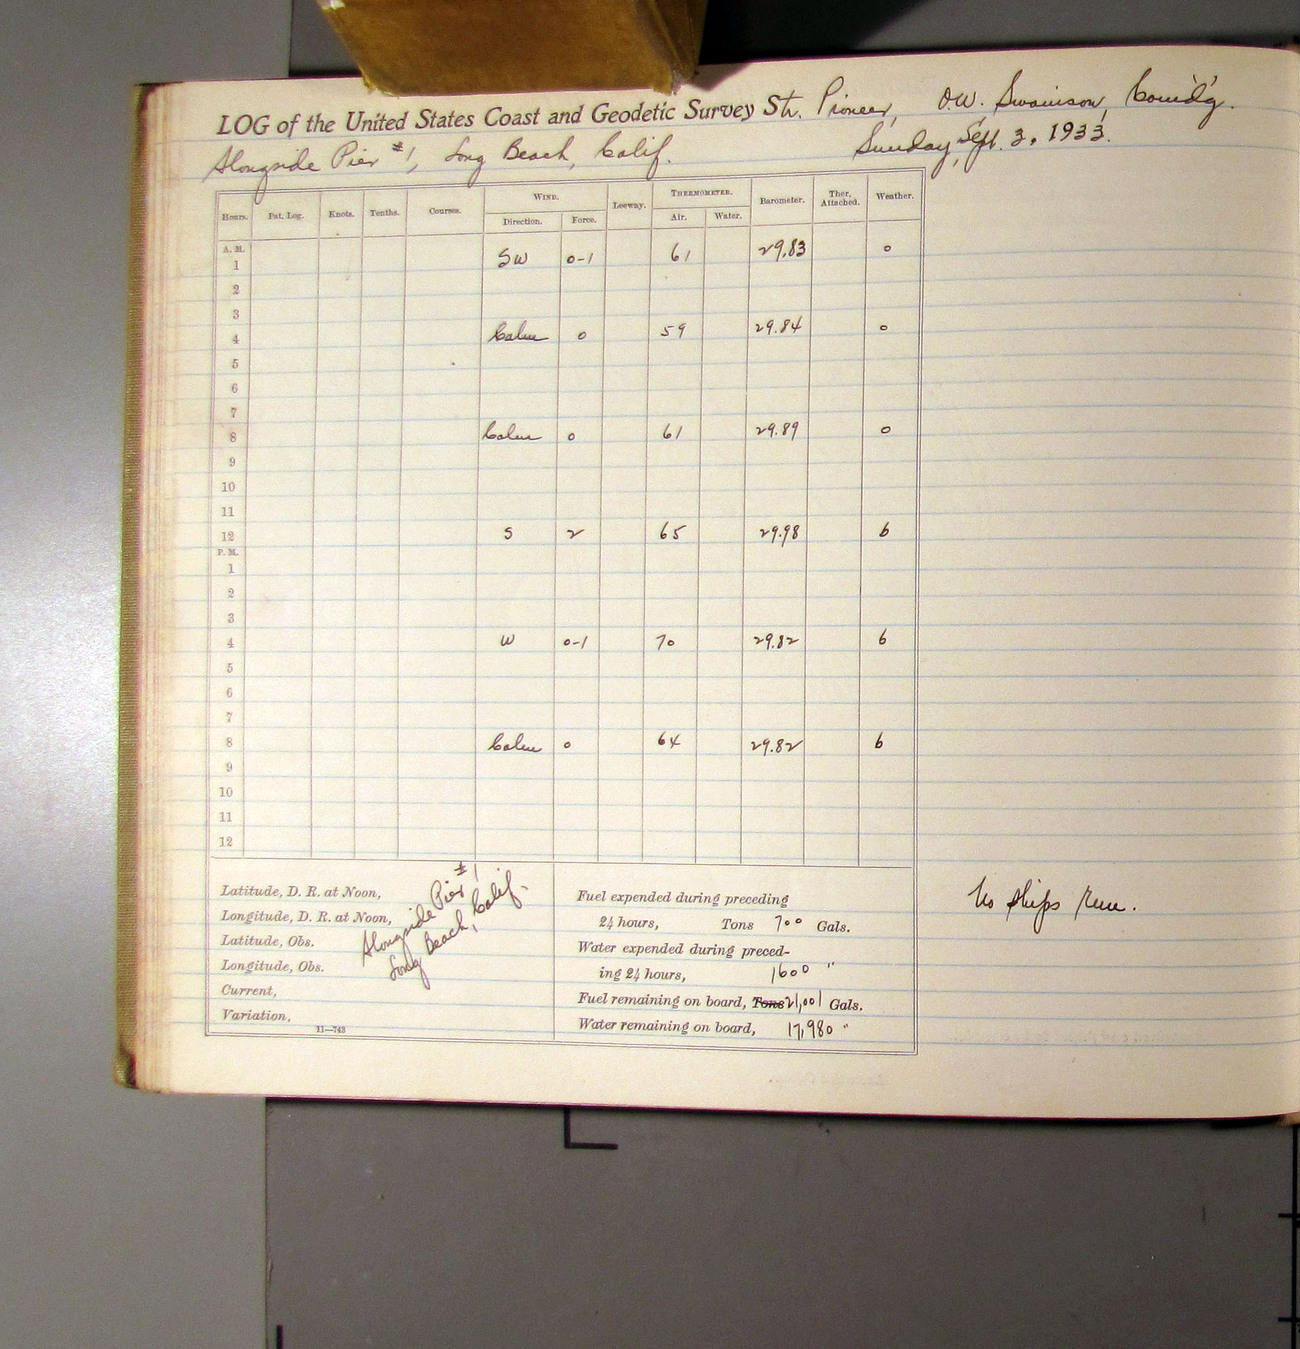 LOG of the United States Coast and Geodetic Survey Str. Pioneer, O.W. Swainson, Comd'g.
Alongside Pier #1, Long Beach, Calif. Sunday, Sept. 3, 1933.
Hours. Pat. Log. Knots. Tenths. Courses. WIND. Leeway. THERMOMETER. Barometer. Ther. Attached. Weather.
Direction. Force. Air. Water.
A. M.
1 SW 0-1 61 29.83 o
2
3
4 Calm 0 59 29.84 o
5
6
7
8 Calm 0 61 29.89 o
9
10
11
12 S 2 65 29.98 b
P. M.
1
2
3
4 W 0-1 70 29.82 b
5
6
7
8 Calm 0 64 29.82 b
9
10
11
12
Latitude, D. R. at Noon,
Longitude, D. R. at Noon,
Latitude, Obs.
Longitude, Obs.
Current,
Variation,
11—743
Alongside Pier #1
Long Beach, Calif.
Fuel expended during preceding
24 hours, Tons 700 Gals.
Water expended during preced-
ing 24 hours, 1600 "
Fuel remaining on board, Tons 21,001 Gals.
Water remaining on board, 17,980 "
No ships run.